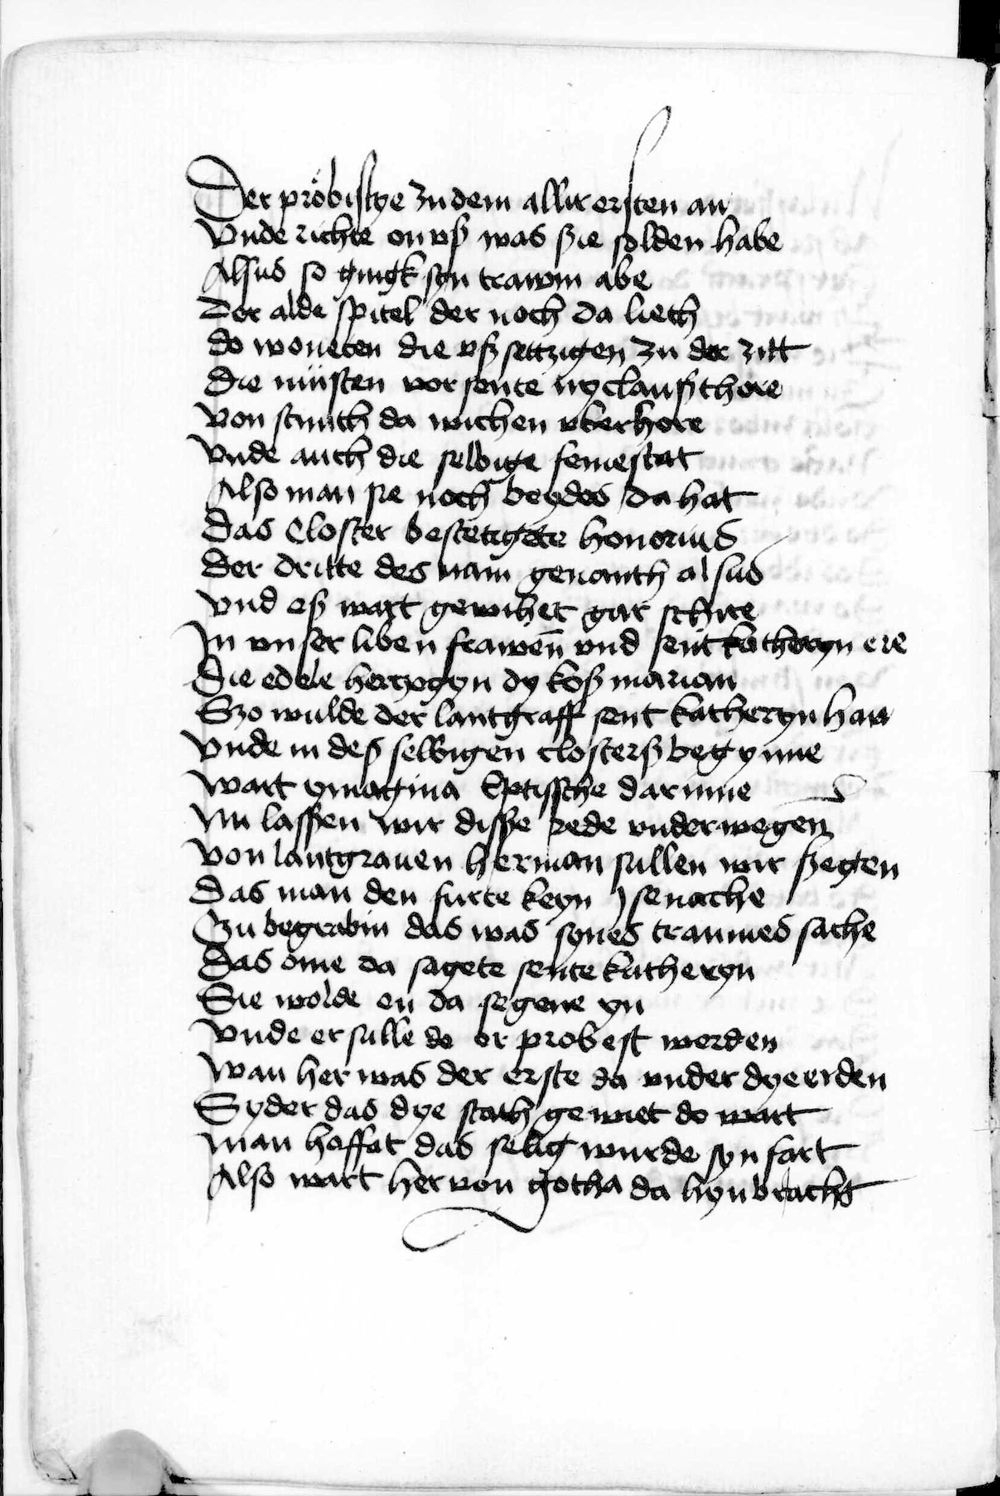 Der pröbistye zu dem allir ersten an
Vnde richte on vß was sie solden habe
Alsus so gingk syn trawm abe
Der alde spitel der noch da lieth
do woneten die vßsettzigen zu der zitt
die müsten vor sente nyclauß thore
Von stunth da wichen vberkore
Vnde auch die selbige femestat
Also man sie noch beydes da hat
das Closter bestetigete honorius
der dritte des nam genanth alsus
Vnd eß wart gewihet gar schire
In vnser liben frawen vnd sent katheryn ere
die edele hertzogyn dy koß marian
Szo wulde der lantgraff sent katheryn han
Vnde in deß selbigen closterß begynne
wart ymagina Eptissche darinne
Nu lassen wir disse rede vnderwegen
Von lantgrauen herman sullen wir segen
das man den furte keyn Jsenache
Czu begrabin das was synes traumes sache
das ome da sagete sente katheryn
Sie wolde en da segene yn
Vnde er sulle do or probest werden
wan her was der erste da vnder dye erden
Syder das dye stath gewiet do wart
man hoffat das selig wurde syn fart
Also wart her von gotha da hyn bracht